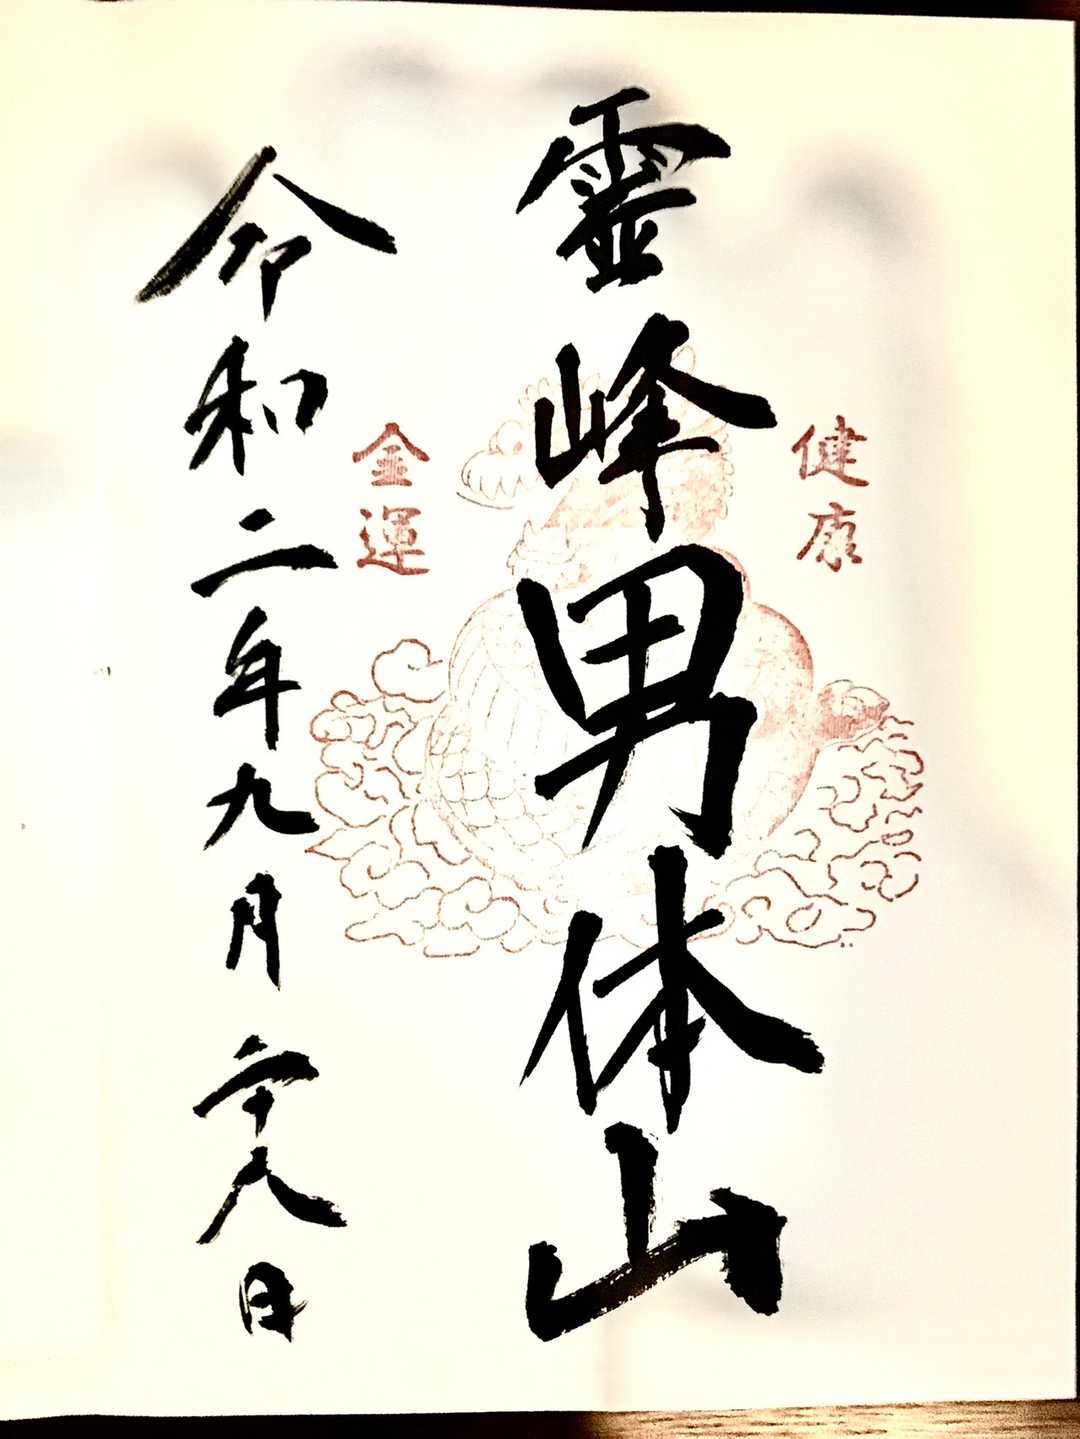 健康
霊峰男体山
金運
令和二年九月二十八日